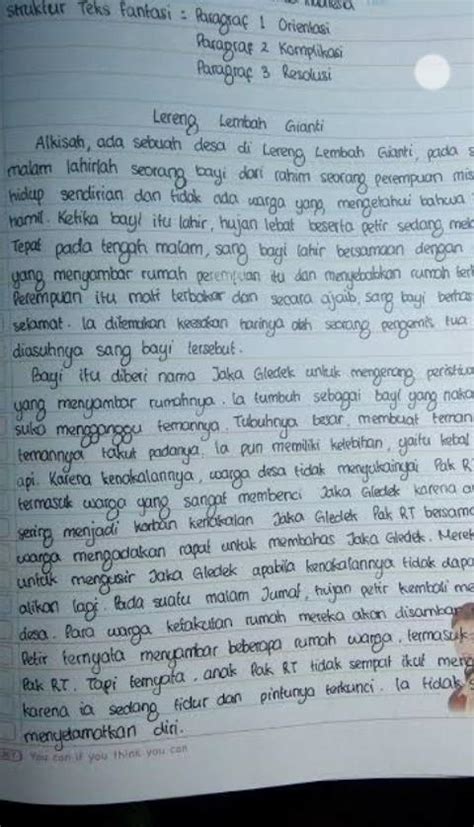 struktur Teks Fantasi : Paragraf 1 Orientasi
Paragraf 2 Komplikasi
Paragraf 3 Resolusi
Lereng Lembah Gianti
Alkisah, ada sebuah desa di Lereng Lembah Gianti, pada s
malam lahirlah seorang bayi dari rahim seorang perempuan mis
hidup sendirian dan tidak ada warga yang mengetahui bahwa
hamil. Ketika bayi itu lahir, hujan lebat beserta petir sedang mel
Tepat pada tengah malam, sang bayi lahir bersamaan dengan
yang menyambar rumah perempuan itu dan menyebabkan rumah ter
Perempuan itu mati terbakar dan secara ajaib, sang bayi berha
selamat. Ia ditemukan keesokan harinya oleh seorang pengemis tua
diasuhnya sang bayi tersebut.
Bayi itu diberi nama Jaka Gledek untuk mengenang peristiwa
yang menyambar rumahnya. Ia tumbuh sebagai bayi yang naka
suka mengganggu temannya. Tubuhnya besar, membuat teman
temannya takut padanya. Ia pun memiliki kelebihan, yaitu kebal
api. Karena kenakalannya, warga desa tidak menyukainya. Pak R
termasuk warga yang sangat membenci Jaka Gledek karena a
sering menjadi korban kenakalan Jaka Gledek. Pak RT bersama
warga mengadakan rapat untuk membahas Jaka Gledek. Merek
untuk mengusir Jaka Gledek apabila kenakalannya tidak dapa
alikan lagi. Pada suatu malam Jumat, hujan petir kembali me
desa. Para warga ketakutan rumah mereka akan disambar
Petir ternyata menyambar beberapa rumah warga, termasuk
Pak RT. Tapi ternyata, anak Pak RT tidak sempat ikut meng
karena ia sedang tidur dan pintunya terkunci. Ia tidak
menyelamatkan diri.
You can if you think you can